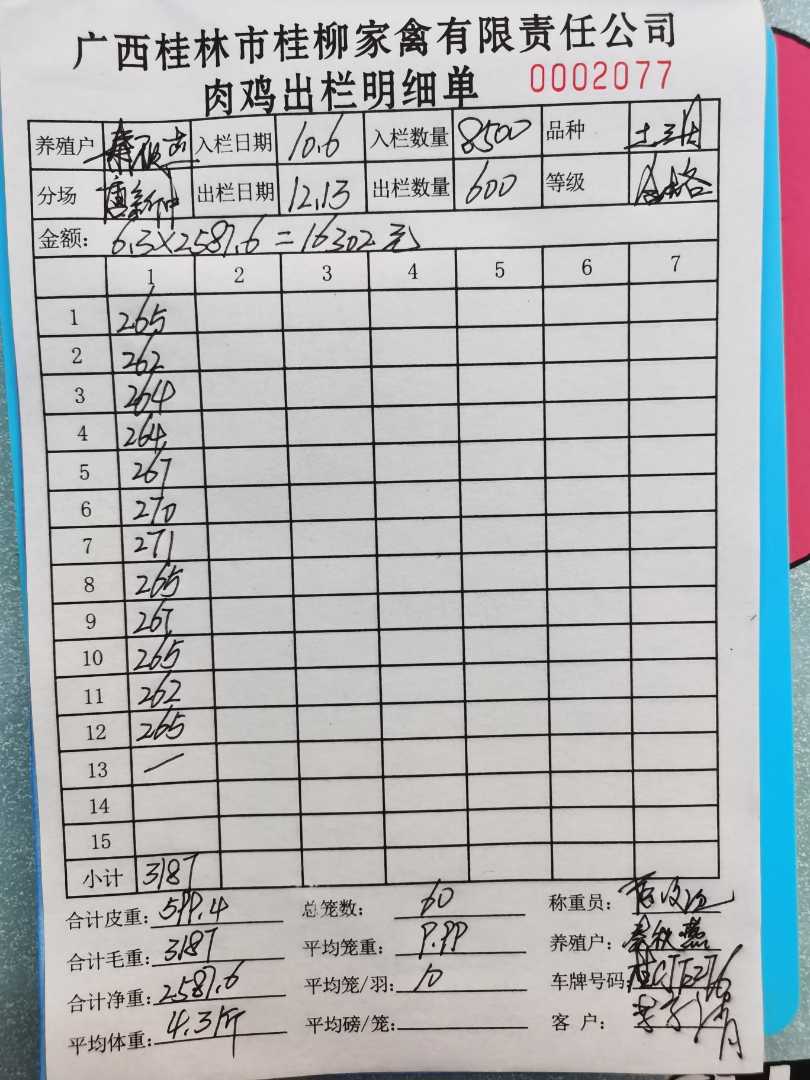 广西桂林市桂柳家禽有限责任公司
肉鸡出栏明细单 0002077
养殖户 入栏日期 10.6 入栏数量 8500 品种
分场 出栏日期 12.13 出栏数量 600 等级 合格
金额: 6.3×2587.6=16302元
1 2 3 4 5 6 7
1 265
2 262
3 264
4 264
5 267
6 270
7 271
8 265
9 267
10 265
11 262
12 265
13 /
14
15
小计 3187
合计皮重: 599.4 总笼数: 60 称重员:
合计毛重: 3187 平均笼重: 9.99 养殖户: 秦秋燕
合计净重: 2587.6 平均笼/羽: 10 车牌号码:
平均体重: 4.3斤 平均磅/笼: 客户: